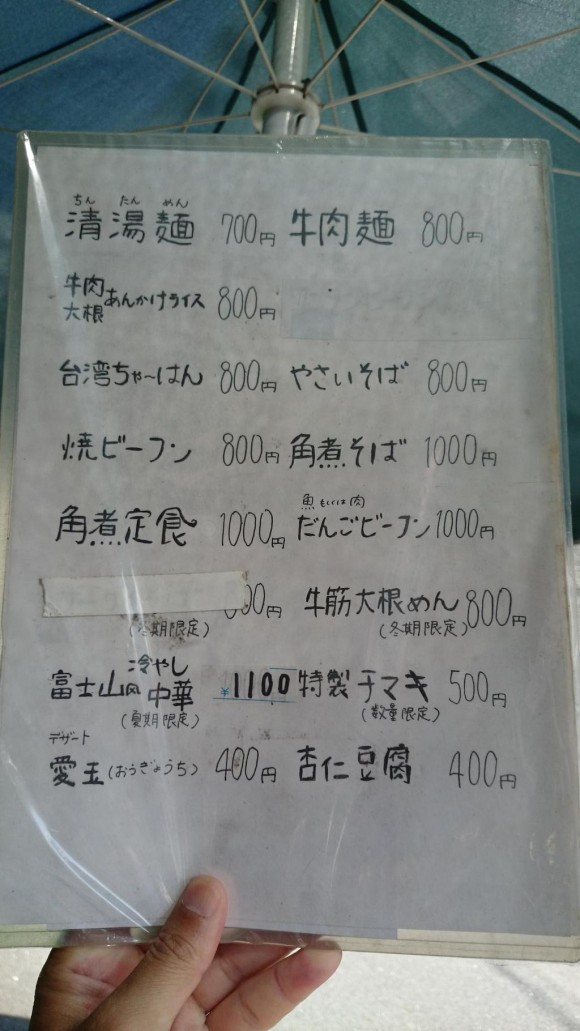 ちんたんめん
清湯麺 700円 牛肉麺 800円
牛肉
大根 あんかけライス 800円
台湾ちゃ〜はん 800円 やさいそば 800円
焼ビーフン 800円 角煮そば 1000円
魚もしくは肉
角煮定食 1000円 だんごビーフン 1000円
00円 牛筋大根めん 800円
(冬期限定) (冬期限定)
冷やし
富士山風 中華 ¥1100 特製チマキ 500円
(夏期限定) (数量限定)
デザート
愛玉(おうぎょうち) 400円 杏仁豆腐 400円